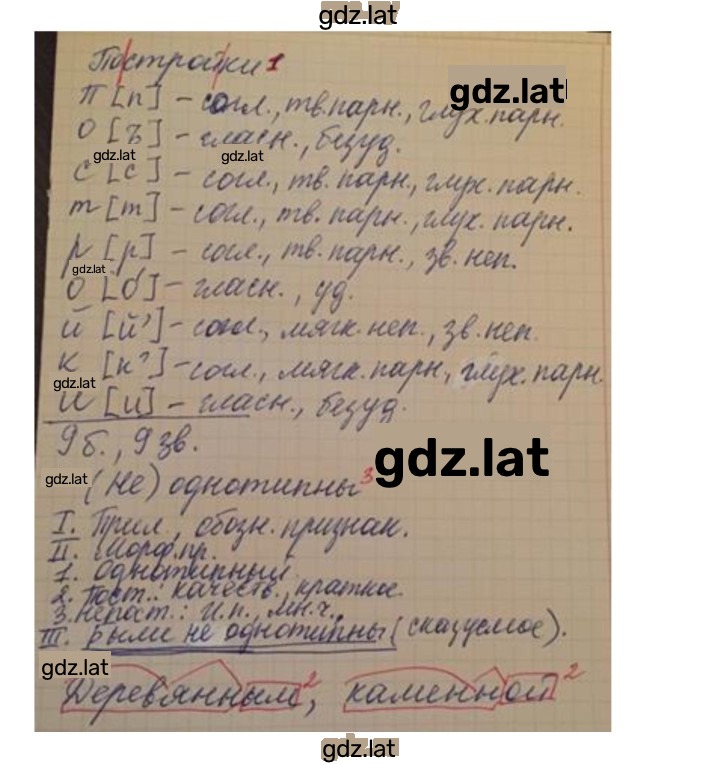 gdz.lat
Постройки 1
gdz.lat
П [п] – согл., тв. парн., глух. парн.
О [ъ] – гласн., безуд.
gdz.lat gdz.lat
С [с] – согл., тв. парн., глух. парн.
т [т] – согл., тв. парн., глух. парн.
р [р] – согл., тв. парн., зв. неп.
gdz.lat
О [о́] – гласн., уд.
й [й'] – согл., мягк. неп., зв. неп.
к [к'] – согл., мягк. парн., глух. парн.
gdz.lat
и [и] – гласн., безуд.
9 б., 9 зв.
gdz.lat
gdz.lat
(Не) однотипны 3
I. Прил., обозн. признак.
II. Морф. пр.
1. Однотипный
2. Пост.: качеств., краткое.
3. Непост.: и.п., мн.ч.,
III. Были не однотипны (сказуемое).
gdz.lat
Деревянным 2, каменной 2
gdz.lat